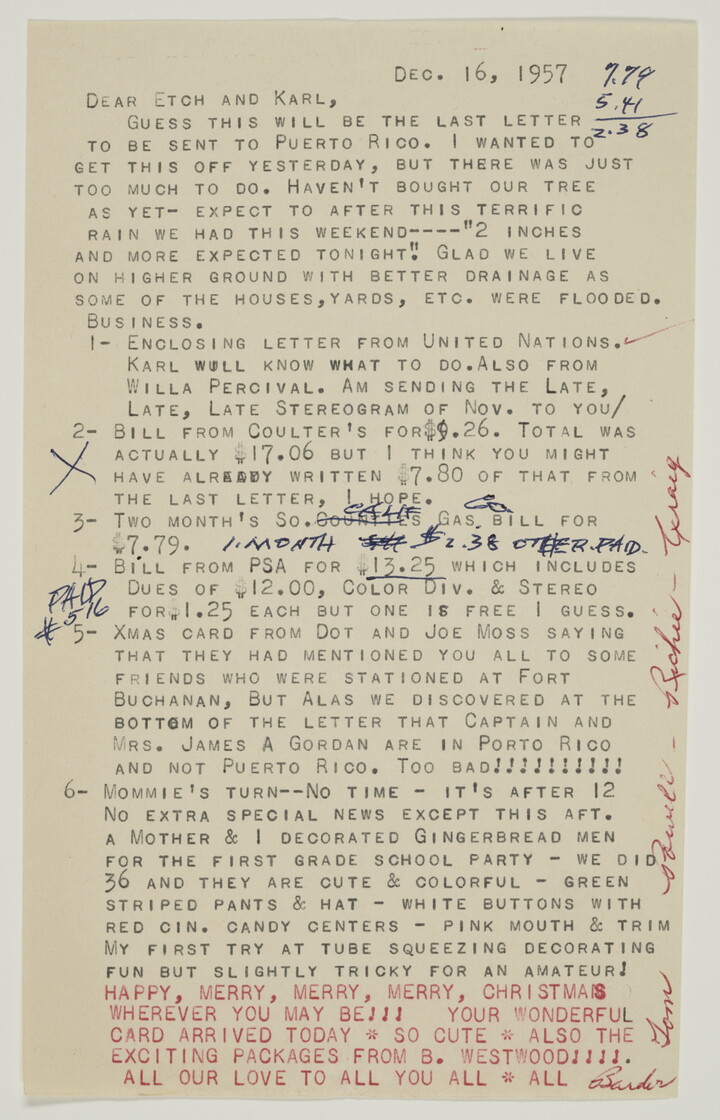 Dec. 16, 1957
7.79
5.41
2.38
Dear Etch and Karl,
Guess this will be the last letter
to be sent to Puerto Rico. I wanted to
get this off yesterday, but there was just
too much to do. Haven't bought our tree
as yet- expect to after this terrific
rain we had this weekend----"2 inches
and more expected tonight". Glad we live
on higher ground with better drainage as
some of the houses,yards, etc. were flooded.
Business.
1- Enclosing letter from United Nations.
Karl wull know what to do.Also from
Willa Percival. Am sending the Late,
Late, Late Stereogram of Nov. to you/
2- Bill from Coulter's for$9.26. Total was
X
actually $17.06 but I think you might
have already written $7.80 of that from
the last letter, I hope.
3- Two month's So.Counties Gas Bill for
Calif Co
$7.79. 1 month $2.38 other paid.
4- Bill from PSA for $13.25 which includes
Paid
#516
Dues of $12.00, Color Div. & Stereo
for$1.25 each but one is free I guess.
5- Xmas card from Dot and Joe Moss saying
that they had mentioned you all to some
friends who were stationed at Fort
Buchanan, But Alas we discovered at the
bottom of the letter that Captain and
Mrs. James A Gordan are in Porto Rico
and not Puerto Rico. Too bad!!!!!!!!!!
6- Mommie's turn--No time - it's after 12
No extra special news except this aft.
a Mother & I decorated Gingerbread men
for the first grade school party - we did
36 and they are cute & colorful - green
striped pants & hat - white buttons with
red cin. candy centers - pink mouth & trim
My first try at tube squeezing decorating
fun but slightly tricky for an amateur!
Happy, Merry, Merry, Merry, Christmas
wherever you may be!!! Your wonderful
card arrived today * so cute * also the
exciting packages from B. Westwood!!!!.
All our love to all you all * All
Tom Powell - Richie - Craig